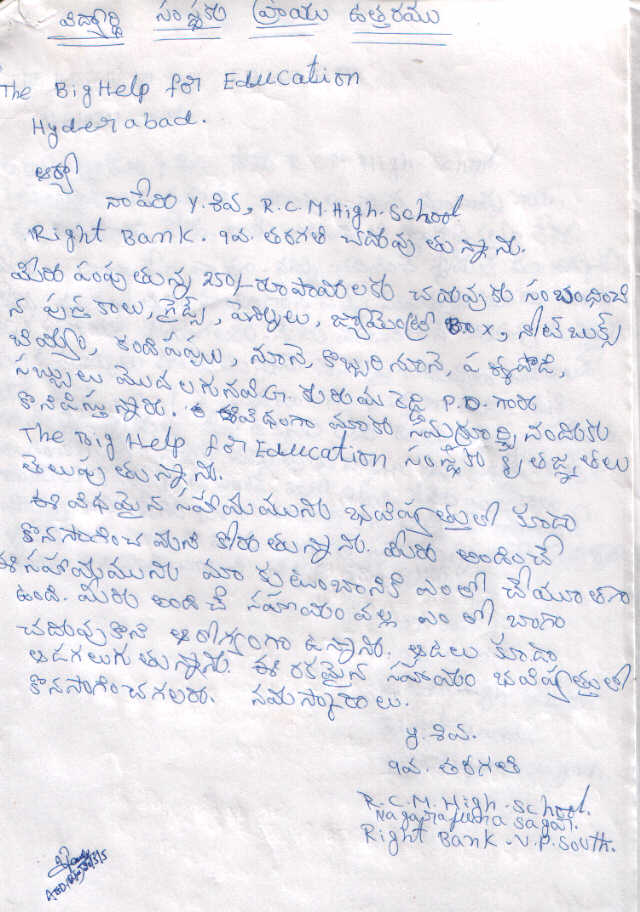 విద్యార్థి సంస్థకు వ్రాయు ఉత్తరము
The Big Help for Education
Hyderabad.
ఆర్యా
నా పేరు Y. శివ, R.C.M. High. School
Right Bank. 9వ. తరగతి చదువు తున్నాను.
మీరు పంపుతున్న 250/- రూపాయిలకు చదువుకు సంబంధించి
న పుస్తకాలు, గైడ్స్, పెన్నులు, జ్యామెంట్రీ Box, నోట్ బుక్స్
బియ్యం, కందిపప్పు, నూనె, కొబ్బరి నూనె, పళ్ళపొడి,
సబ్బులు మొదలగునవి G. గురుమ రెడ్డి P.D. గారు
కొనిపిస్తున్నారు. ఈవిధంగా మాకు సమకూర్చి నందుకు
The Big Help for Education సంస్థకు కృతజ్ఞతలు
తెలుపు తున్నాను.
ఈ విధమైన సహాయమును భవిష్యత్తులో కూడా
కొనసాగించ మని కోరు తున్నాను. మీరు అందించే
ఈ సహాయమును మా కుటుంబానికి ఎంతో చేయూతగా
ఉంది. మీరు అందించే సహాయం వల్ల ఎంతో బాగా
చదువుకొని ఆరోగ్యంగా ఉన్నాను. ఆటలు కూడా
ఆడగలుగుతున్నాను. ఈ రకమైన సహాయం భవిష్యత్తులో
కొనసాగించగలరు. నమస్కారాలు.
Y. శివ.
9వ. తరగతి
R.C.M. High. School.
Nagarajuna Sagar.
Right Bank - V.P. South.